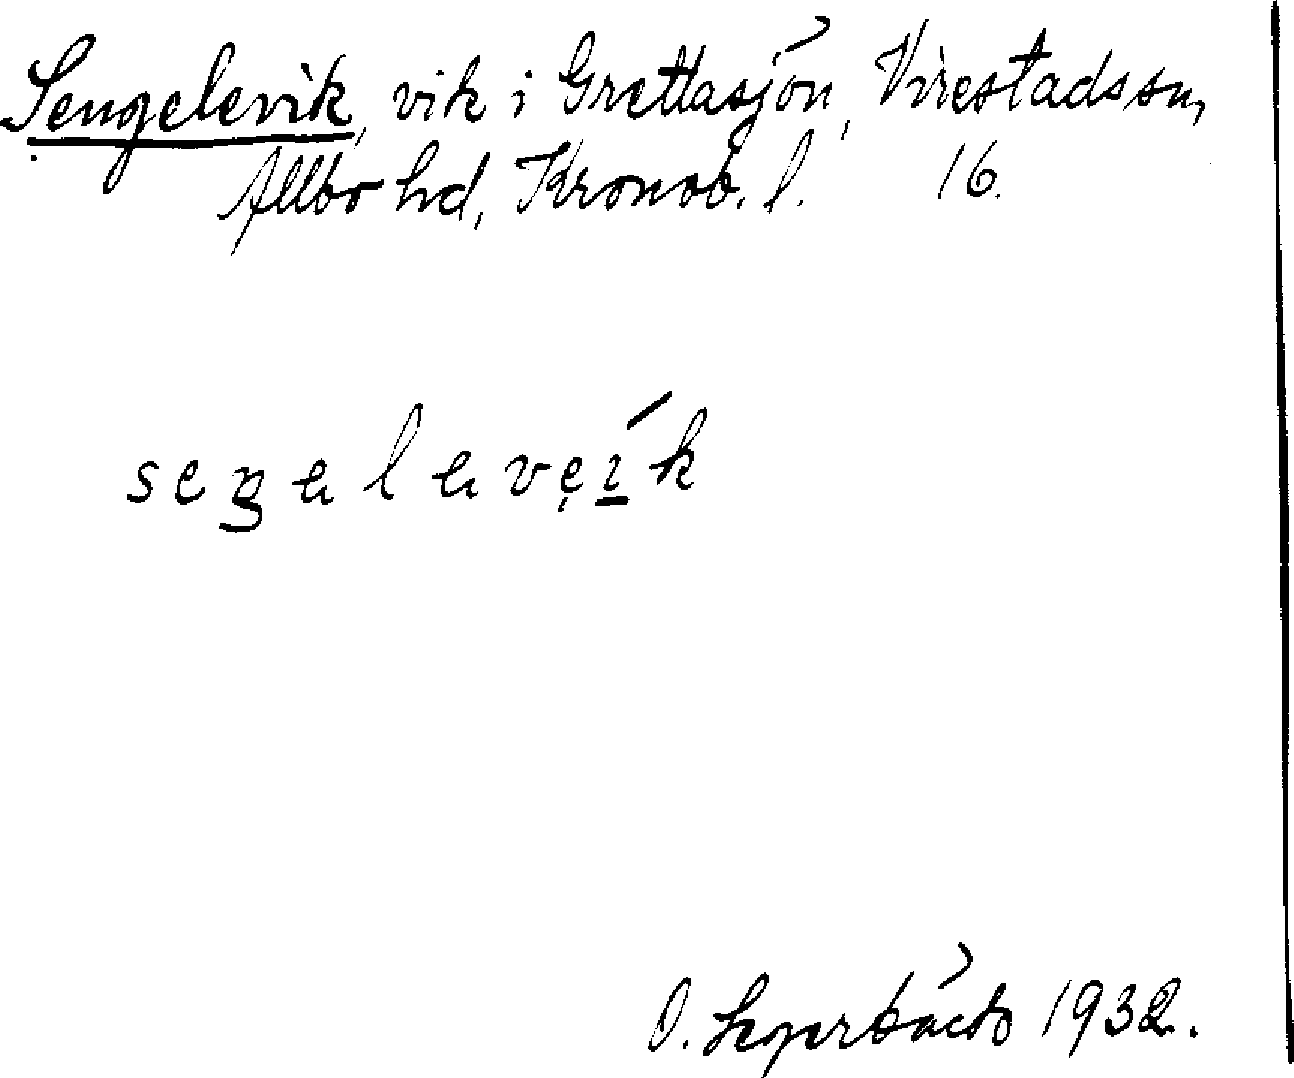 Sengelevik, vik i Grettasjön, Virestads sn,
Allbo hd, Kronob. l. 16.
seŋələvẹík
O. Lagerbäck 1932.